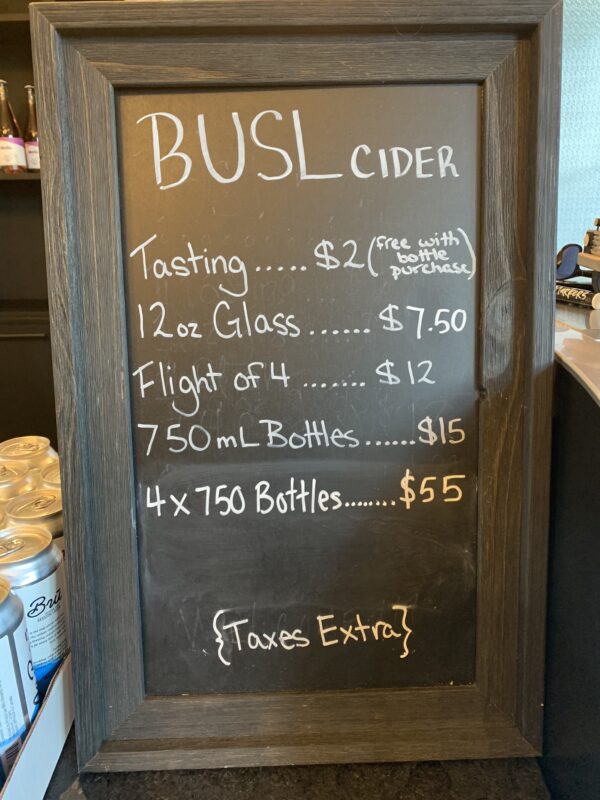 BUSL CIDER
Tasting ..... $2 (free with bottle purchase)
12oz Glass ...... $7.50
Flight of 4 ....... $12
750mL Bottles ......$15
4x750 Bottles........$55
{Taxes Extra}
Brü